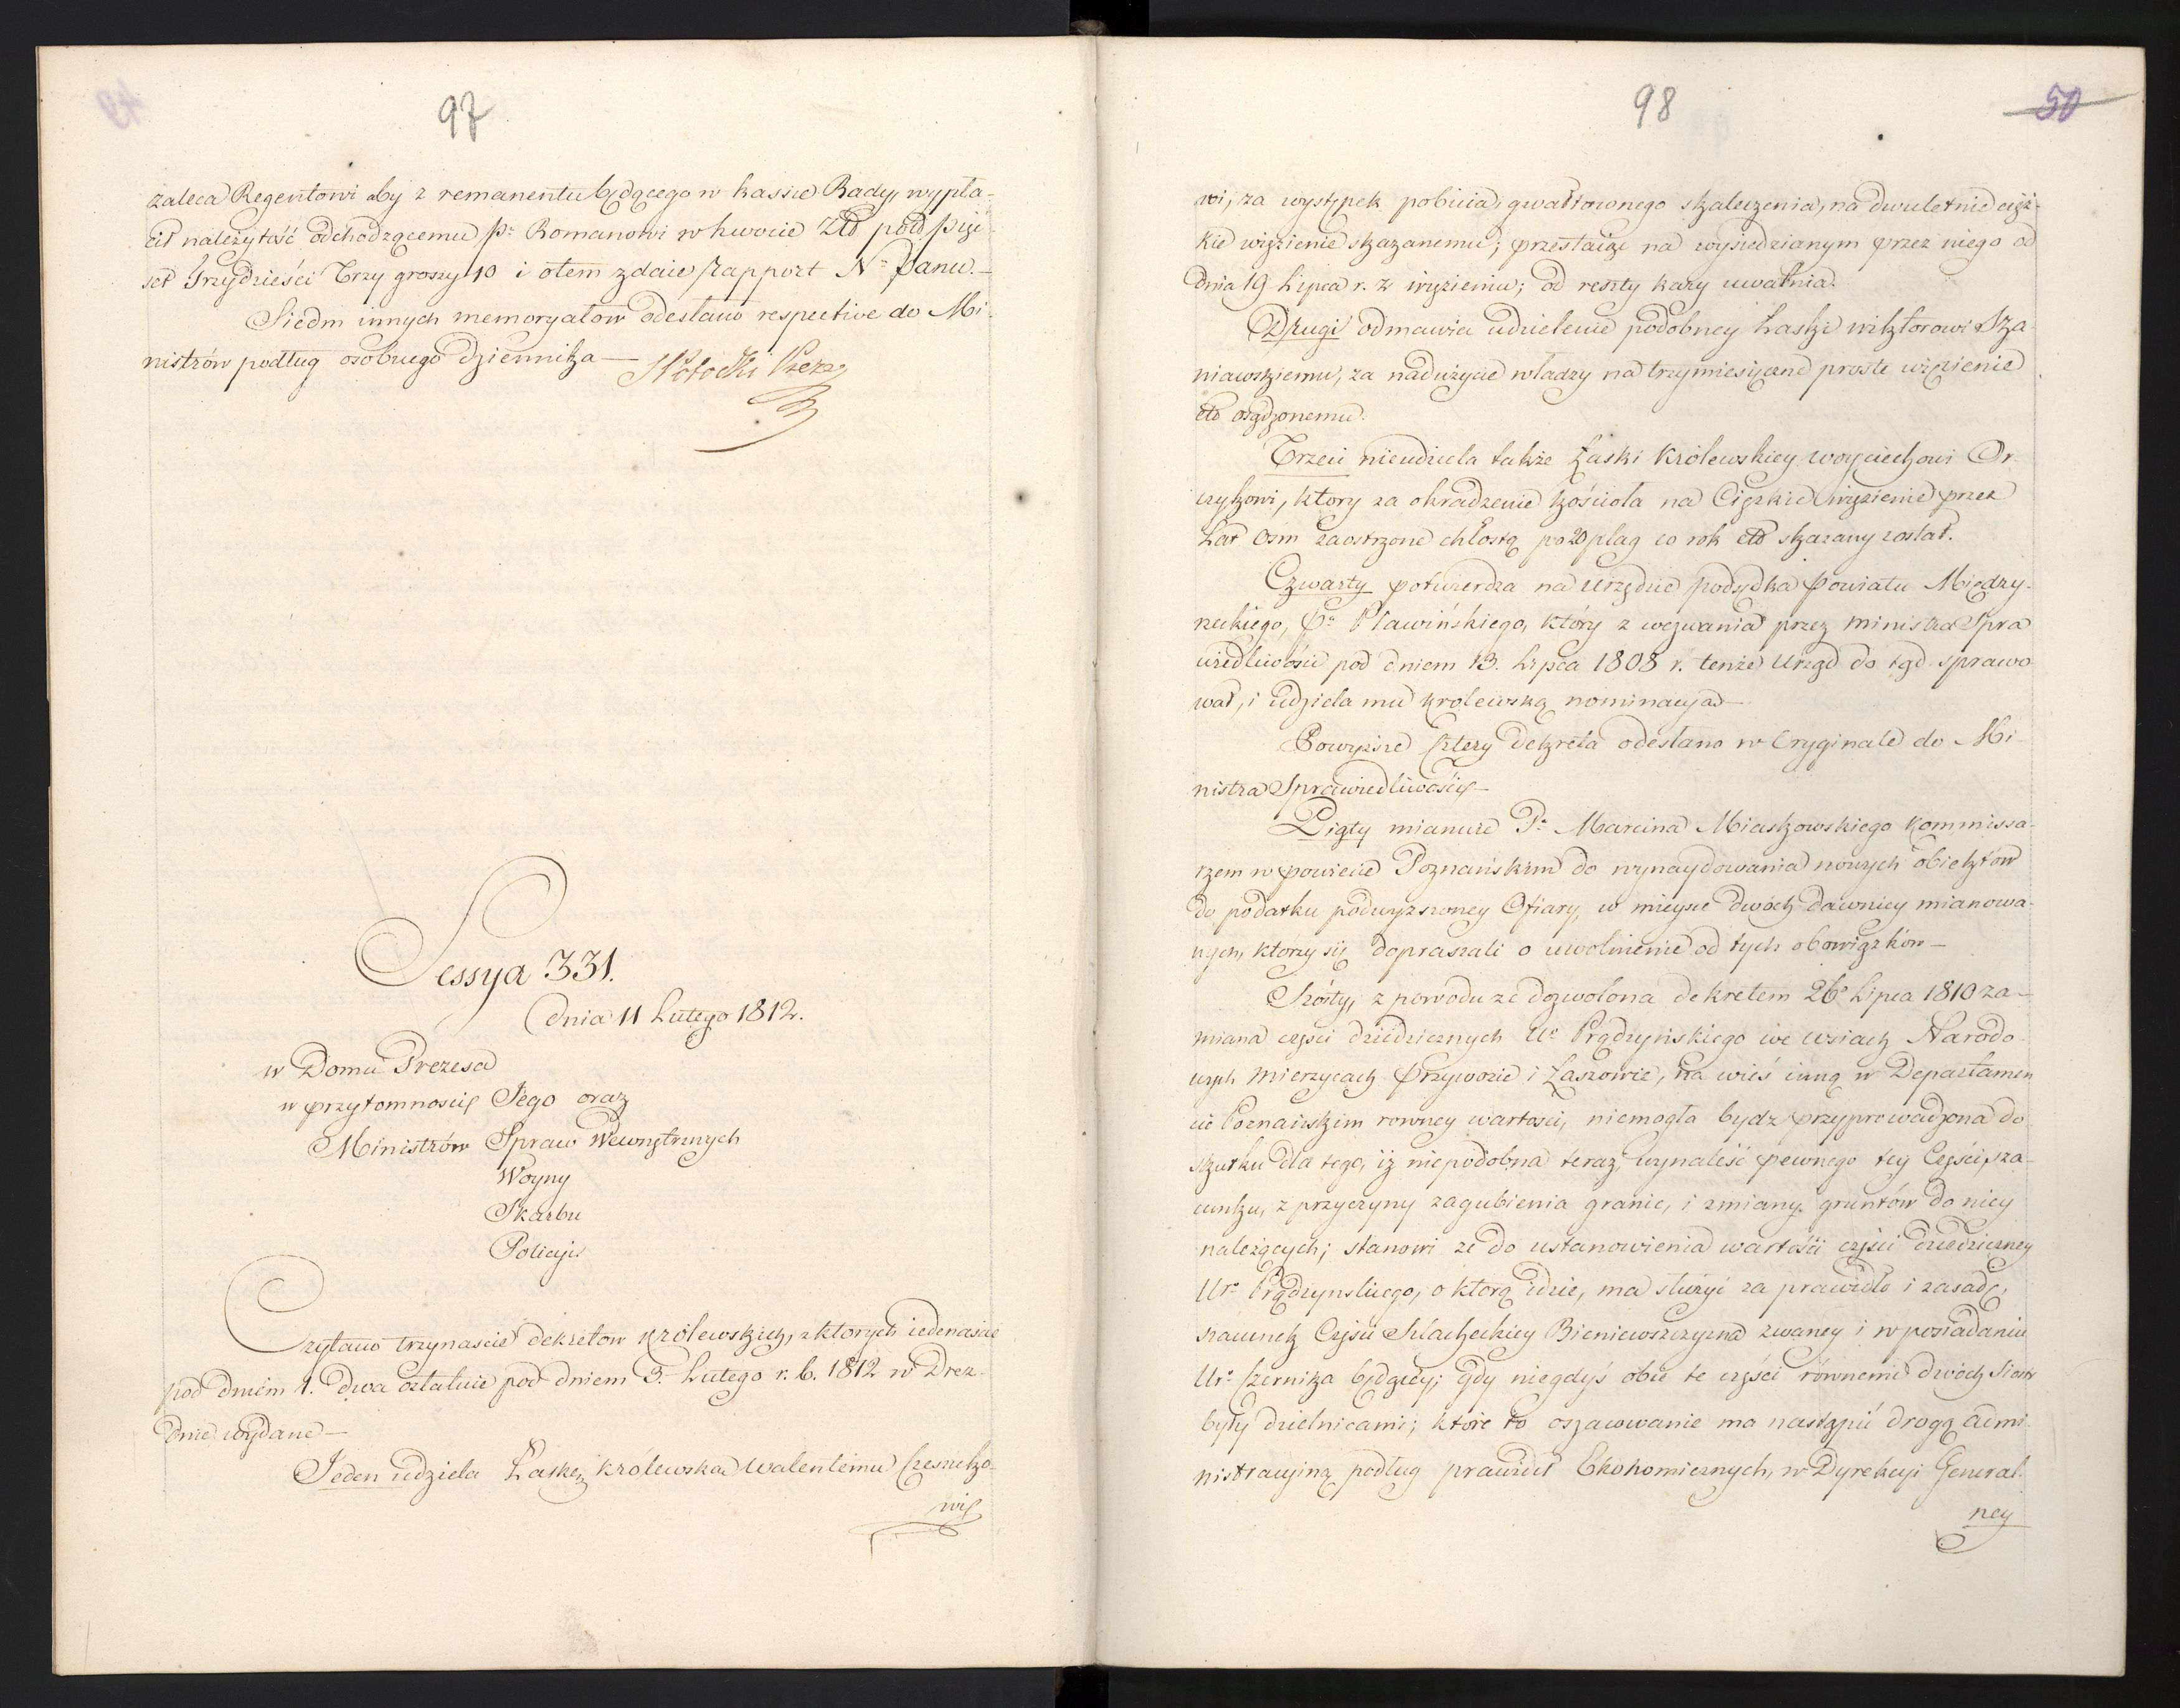 97
zaleca Regentowi aby z remanentu będącego w kassie Rady, wypła-
cił należytość odchodzącemu Pu Romanowi w kwocie Złł pold pięć
set Trzydzieści Trzy groszy 10 i otem zdaie Rapport N. Panu.—
Siedm innych memoryałow odesłano respective do Mi-
nistrów podług osobnego Dziennika— SPotocki Prez
Sessya 331.
Dnia 11 Lutego 1812.
w Domu Prezesa
w przytomności Jego oraz
Ministrów Spraw Wewnętrznych
Woyny
Skarbu
Policyi
Czytano trzynaście dekretow Królewskich, z ktorych iedenaście
pod dniem 1. dwa ostatnie pod dniem 3. Lutego r. b. 1812 w Drez-
dnie wydane—
Jeden udziela Łaskę Królewska Walentemu
wi
98
50
wi, za występek pobicia, gwałtownego skaleczenia, na dwuletnie cięż-
kie więzienie skazanemu; przestaiąc na wysiedzianym przez niego od
dnia 19 Lipca r. z więzieniu; od reszty kary uwalnia.
Drugi odmawia udzielenie podobney Łaski Wiktorowi Sza-
niawskiemu, za nadużycie władzy na trzymiesięczne proste więzienie
osądzonemu.
Trzeci nieudziela także Łaski Królewskiey Woyciechowi Or-
czykowi, ktory za okradzenie kościoła na Ciężkie więzienie przez
Lat Osm zaostrzone chłostą po 20 plag co rok skazany został.
Czwarty potwierdza na Urzędzie podsędka Powiatu Między-
rzeckiego, Pa Pławińskiego, który z wezwania przez ministra Spra
wiedliwości pod dniem 13. Lipca 1808 r. tenże Urząd do tąd sprawo
wał, i udziela mu Krolewską nominacyą—
Powyższe cztery Dekreta odesłano w Oryginale do Mi-
nistra Sprawiedliwości—
Piąty mianuie Pa Marcina Miaskowskiego Kommissa-
rzem w powiecie Poznańskim do wynaydowania nowych obiektów
do podatku podwyższoney Ofiary, w mieysce dwóch dawniey mianowa-
nych, ktorzy się dopraszali o uwolnienie od tych obowiązków—
Szósty, z powodu że dozwolona dekretem 26o Lipca 1810 za-
miana części dziedzicznych Uo Prądzyńskiego we wsiach Narodo-
wych Mierzycach Przywozie i Łaszowie, na wieś inną w Departamen
cie Poznańskim rowney wartości, niemogła bydz przyprowadzona do
skutku dla tego, iż niepodobna teraz wynaleść pewnego tey Części sza-
cunku, z przyczyny zagubienia granic, i zmiany gruntów do niey
należących; stanowi że do ustanowienia wartości części dziedziczney
Uro Prądzynskiego, o ktorą idzie, ma służyć za prawidło i zasadę,
szacunek Części Szlacheckiey Bieniewszczyzna zwaney i w posiadaniu
Uro Czernika będącey; gdy niegdyś obie te części równemi dwóch Siostr
były dzielnicami; które to oszacowanie ma nastąpić drogą admi-
nistracyiną podług prawideł Ekonomicznych, w Dyrekcyi General-
ney